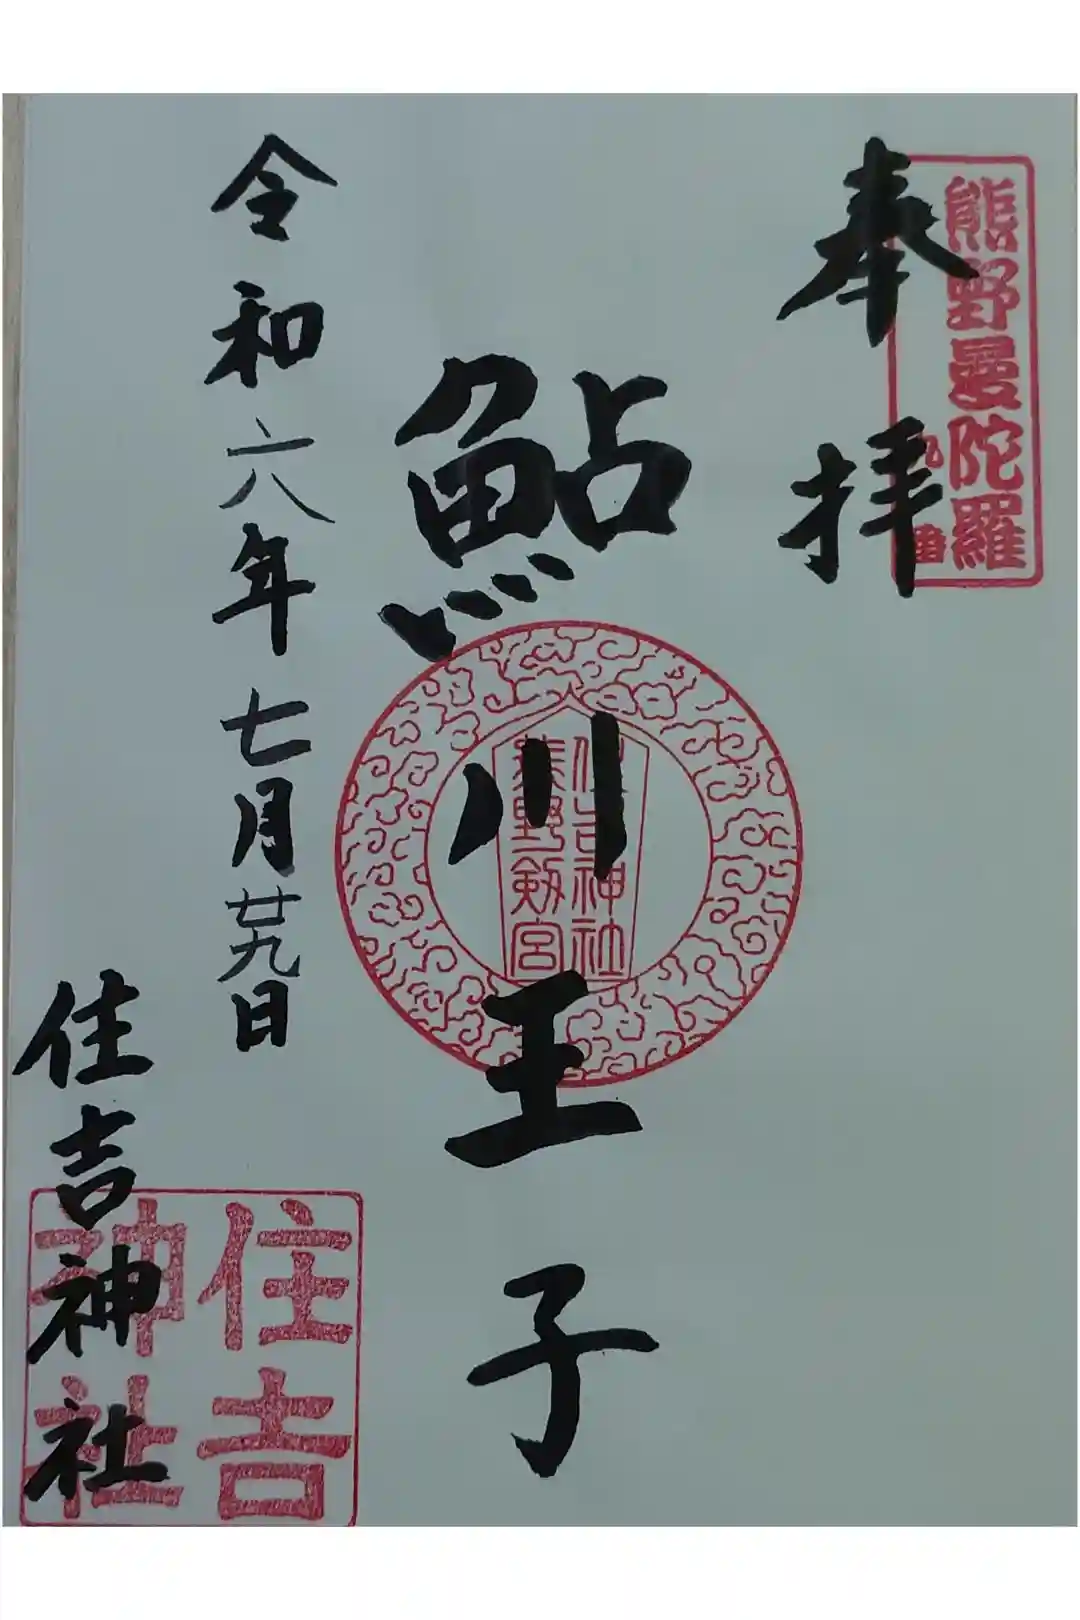 奉拝
熊野曼陀羅
九番
鮎川王子
住吉神社
葉野剱宮
令和六年七月廿九日
住吉神社
住吉
神社